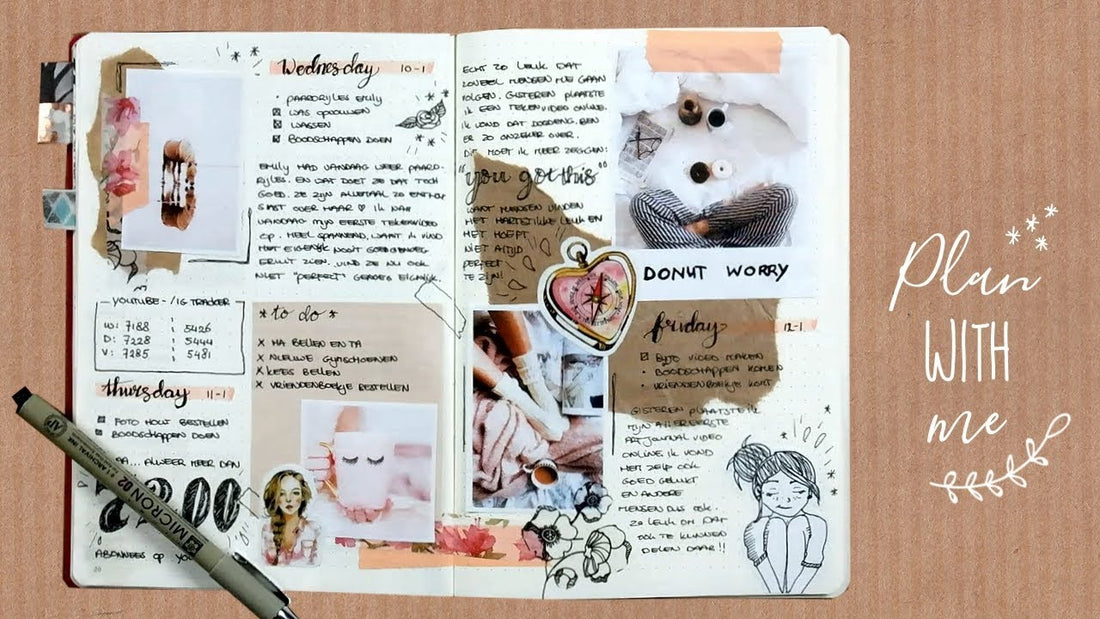 Wednesday 10-1
PAARDRIJLES EMILY
WAS OPVOUWEN
WASSEN
BOODSCHAPPEN DOEN
EMILY HAD VANDAAG WEER PAARD-
RIJLES. EN WAT DOET ZE DAT TOCH
GOED. ZE ZIJN ALLEMAAL ZO ENTHOU
SIAST OVER HAAR ♡ IK NAM
VANDAAG MIJN EERSTE TEKENVIDEO
OP. HEEL SPANNEND, WANT IK VIND
HET EIGENLIJK NOOIT GOED GENOEG
ERUIT ZIEN. VIND ZE NU OOK
NIET "PERFECT" GENOEG EIGENLIJK.
YOUTUBE-/IG TRACKER
W: 7188 5426
D: 7228 5444
V: 7285 5481
*to do*
x MA BELLEN EN TA
x NIEUWE GYMSCHOENEN
x KEES BELLEN
x VRIENDENBOEKJE BESTELLEN
thursday 11-1
FOTO HOUT BESTELLEN
BOODSCHAPPEN DOEN
ALWEER MEER DAN
7200
ABONNEES OP
ECHT ZO LEUK DAT
ZOVEEL MENSEN ME GAAN
VOLGEN. GISTEREN PLAATSTE
IK EEN TEKENVIDEO ONLINE.
IK VOND DAT DOODENG. BEN
ER ZO ONZEKER OVER.
DIT MOET IK MEER ZEGGEN:
"you got this"
WANT MENSEN VINDEN
HET HARTSTIKKE LEUK EN
HET HOEFT
NIET ALTIJD
PERFECT
TE ZIJN!
DONUT WORRY
friday 12-1
VIDEO MAKEN
BOODSCHAPPEN KOMEN
VRIENDENBOEKJE KOMT
GISTEREN PLAATSTE IK
MIJN ALLEREERSTE
ART JOURNAL VIDEO
ONLINE. IK VOND
HET ZELF OOK
GOED GELUKT
EN ANDERE
MENSEN DUS OOK.
ZO LEUK OM DAT
OOK TE KUNNEN
DELEN DAAR!!
MICRON 02
Plan
WITH
me